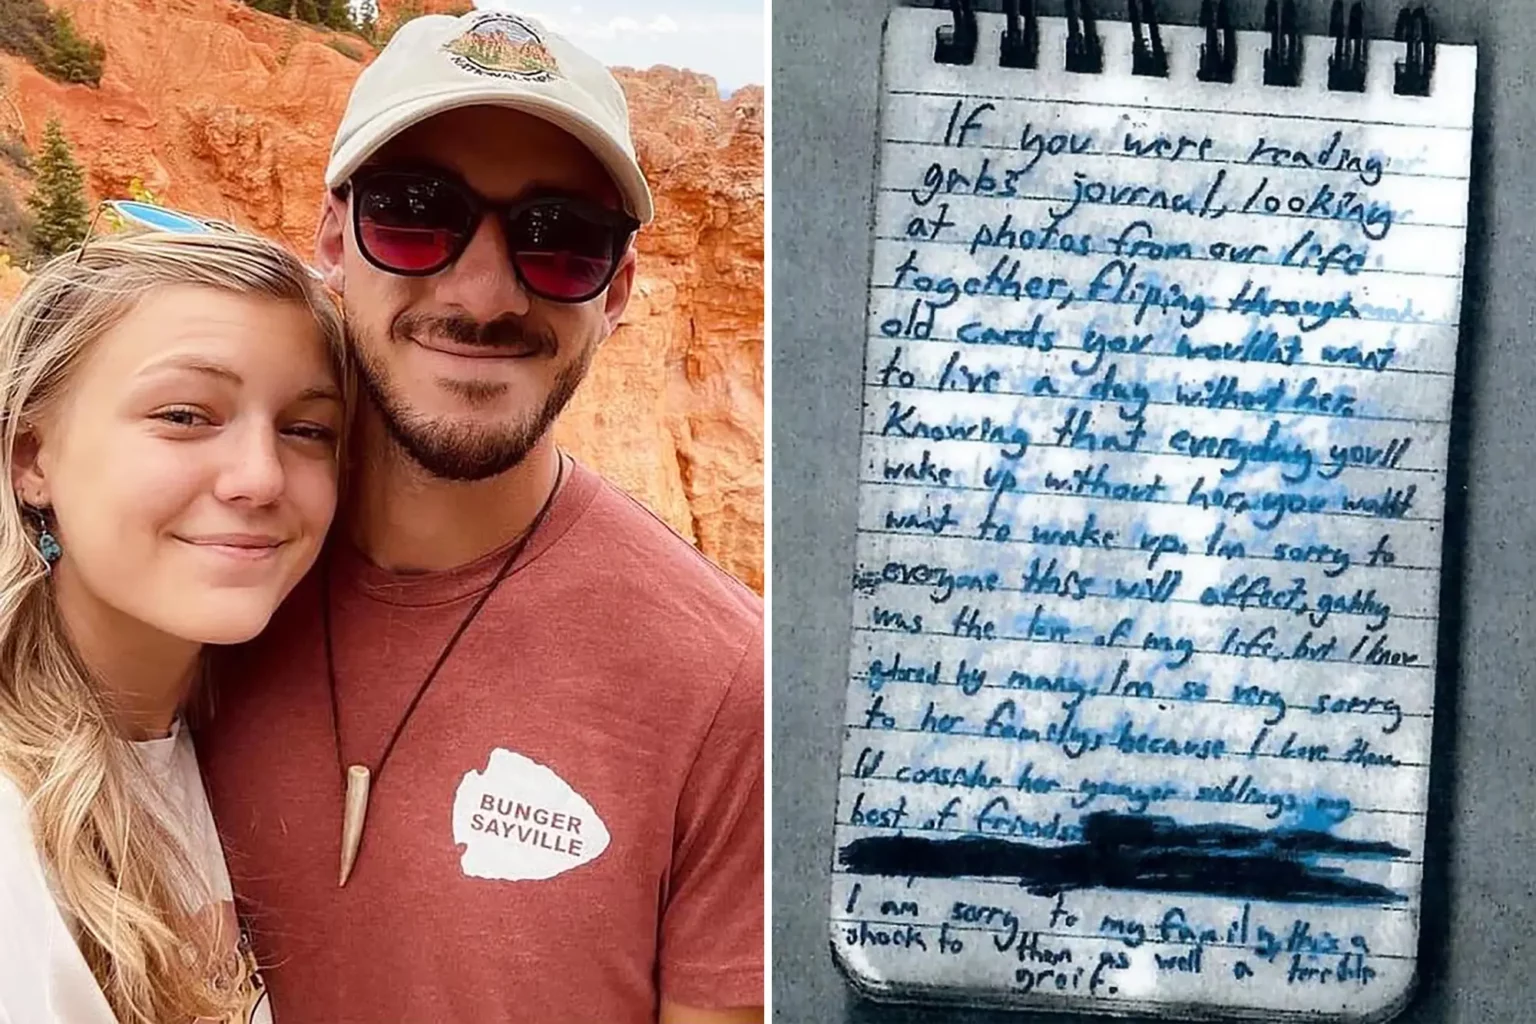 NATIONAL PARK
BUNGER
SAYVILLE
If you were reading
gabs journal, looking
at photos from our life
together, fliping through
old cards you wouldnt want
to live a day without her.
Knowing that everyday you'll
wake up without her, you wouldnt
want to wake up. I'm sorry to
everyone this will affect, gabby
was the love of my life, but I know
adored by many. I'm so very sorry
to her family, because I love them
I'd consider her younger siblings my
best of friends
I am sorry to my family, this is a
shock to them as well a terrible
greif.